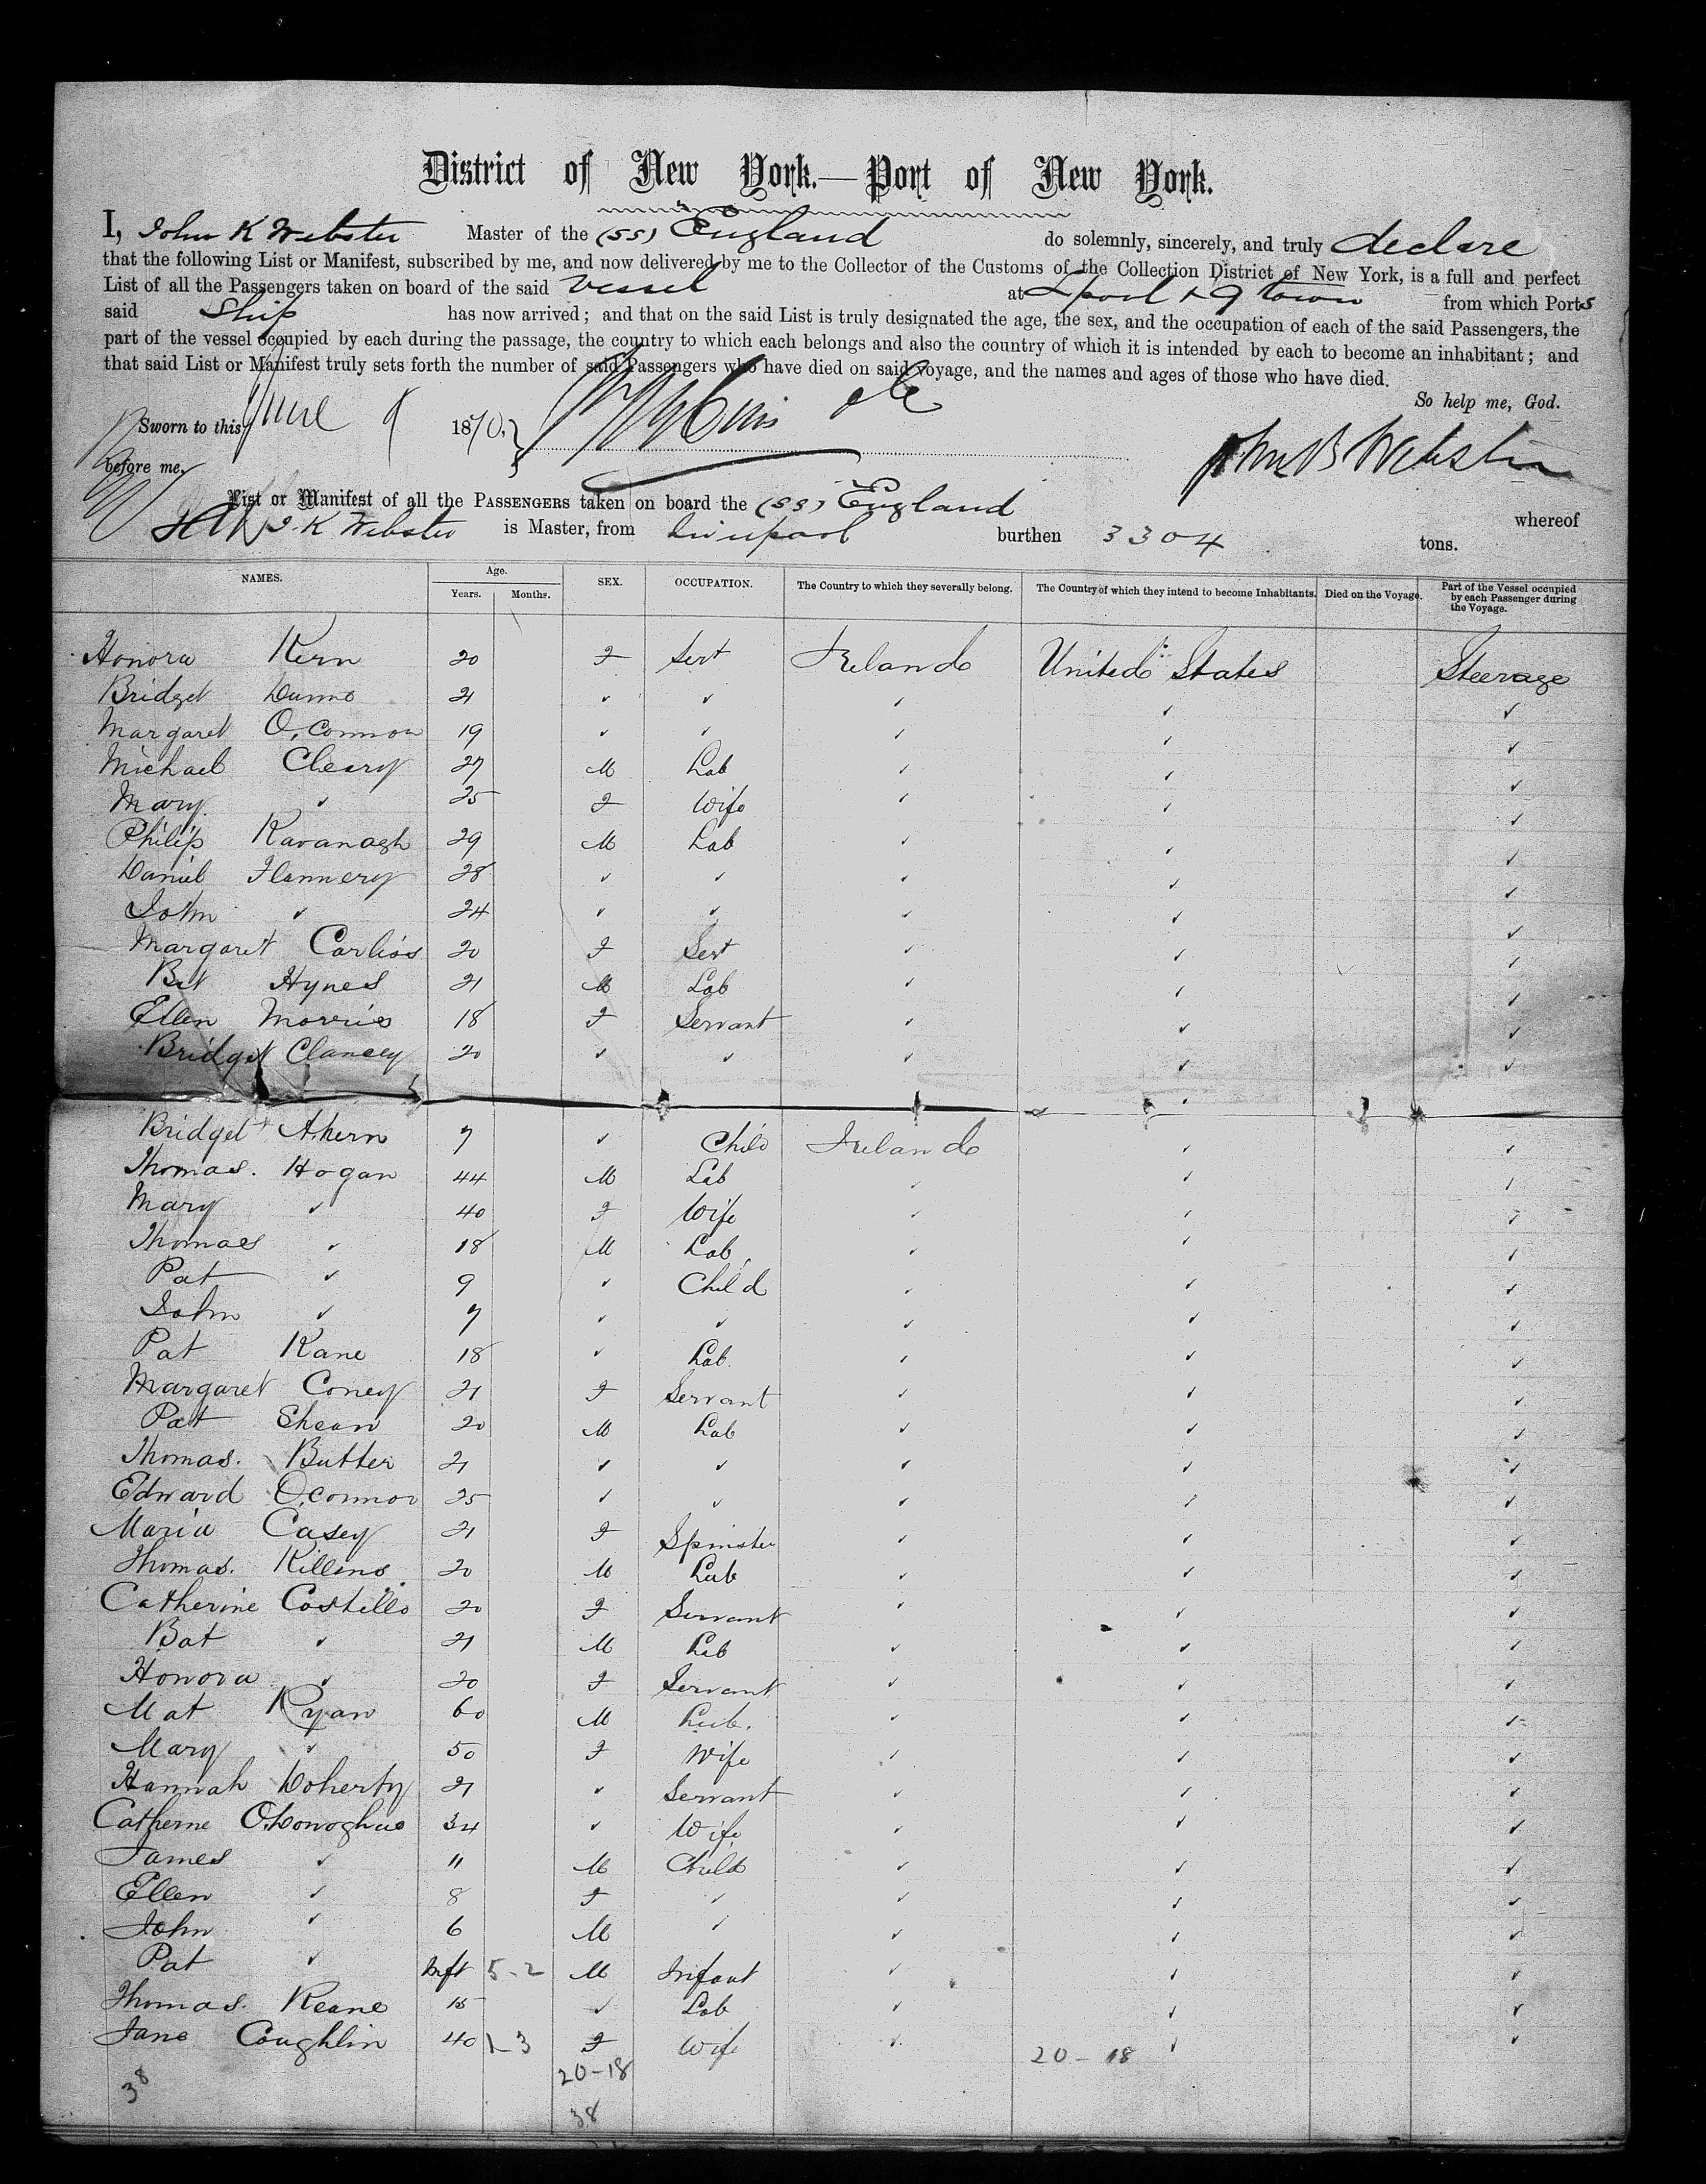 District of New York.—Port of New York.
I, John K Webster Master of the (SS) England do solemnly, sincerely, and truly declare
that the following List or Manifest, subscribed by me, and now delivered by me to the Collector of the Customs of the Collection District of New York, is a full and perfect
List of all the Passengers taken on board of the said Vessel at Lpool & Q town from which Ports
said Ship has now arrived; and that on the said List is truly designated the age, the sex, and the occupation of each of the said Passengers, the
part of the vessel occupied by each during the passage, the country to which each belongs and also the country of which it is intended by each to become an inhabitant; and
that said List or Manifest truly sets forth the number of said Passengers who have died on said voyage, and the names and ages of those who have died.
So help me, God.
Sworn to this June 9 1870,
before me,
List or Manifest of all the PASSENGERS taken on board the (SS) England whereof
J. K Webster is Master, from Liverpool burthen 3304 tons.
NAMES. Age. Years. Months. SEX. OCCUPATION. The Country to which they severally belong. The Country of which they intend to become Inhabitants. Died on the Voyage. Part of the Vessel occupied by each Passenger during the Voyage.
Honora Kern 20 F Servt Ireland United States Steerage
Bridget Dunne 21 ✓ ✓ ✓ ✓ ✓
Margaret O,Connor 19 ✓ ✓ ✓ ✓ ✓
Michael Cleary 27 M Lab ✓ ✓ ✓
Mary ✓ 25 F Wife ✓ ✓ ✓
Philip Kavanagh 29 M Lab ✓ ✓ ✓
Daniel Flannery 28 ✓ ✓ ✓ ✓ ✓
John ✓ 24 ✓ ✓ ✓ ✓ ✓
Margaret 20 F Servt ✓ ✓ ✓
Hynes 21 M Lab ✓ ✓ ✓
Ellen Morris 18 F Servant ✓ ✓ ✓
Bridget Clancey 20 ✓ ✓ ✓ ✓ ✓
Bridget Ahern 7 ✓ Child Ireland ✓ ✓
Thomas. Hogan 44 M Lab ✓ ✓ ✓
Mary ✓ 40 F Wife ✓ ✓ ✓
Thomas ✓ 18 M Lab ✓ ✓ ✓
Pat ✓ 9 ✓ Child ✓ ✓ ✓
John ✓ 7 ✓ ✓ ✓ ✓ ✓
Pat Kane 18 ✓ Lab. ✓ ✓ ✓
Margaret Coney 21 F Servant ✓ ✓ ✓
Pat Shean 20 M Lab ✓ ✓ ✓
Thomas. Butter 21 ✓ ✓ ✓ ✓ ✓
Edward O,Connor 25 ✓ ✓ ✓ ✓ ✓
Maria Casey 21 F Spinster ✓ ✓ ✓
Thomas. Killens 20 M Lab ✓ ✓ ✓
Catherine Costello 20 F Servant ✓ ✓ ✓
Bat ✓ 21 M Lab ✓ ✓ ✓
Honora ✓ 20 F Servant ✓ ✓ ✓
Mat Ryan 60 M Lab. ✓ ✓ ✓
Mary ✓ 50 F Wife ✓ ✓ ✓
Hannah Doherty 21 ✓ Servant ✓ ✓ ✓
Catherne O,Donoghue 34 ✓ Wife ✓ ✓ ✓
James ✓ 11 M Child ✓ ✓ ✓
Ellen ✓ 8 F ✓ ✓ ✓ ✓
John ✓ 6 M ✓ ✓ ✓ ✓
Pat ✓ Inft 5-2 M Infant ✓ ✓ ✓
Thomas. Keane 18 ✓ Lab ✓ ✓ ✓
Jane Coughlin 40 1-3 F Wife ✓ ✓ ✓
20-18 20-18
38 38